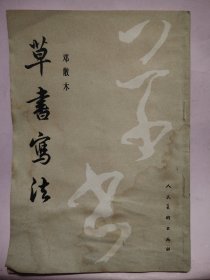 草書寫法
邓散木
草书
人民美术出版社